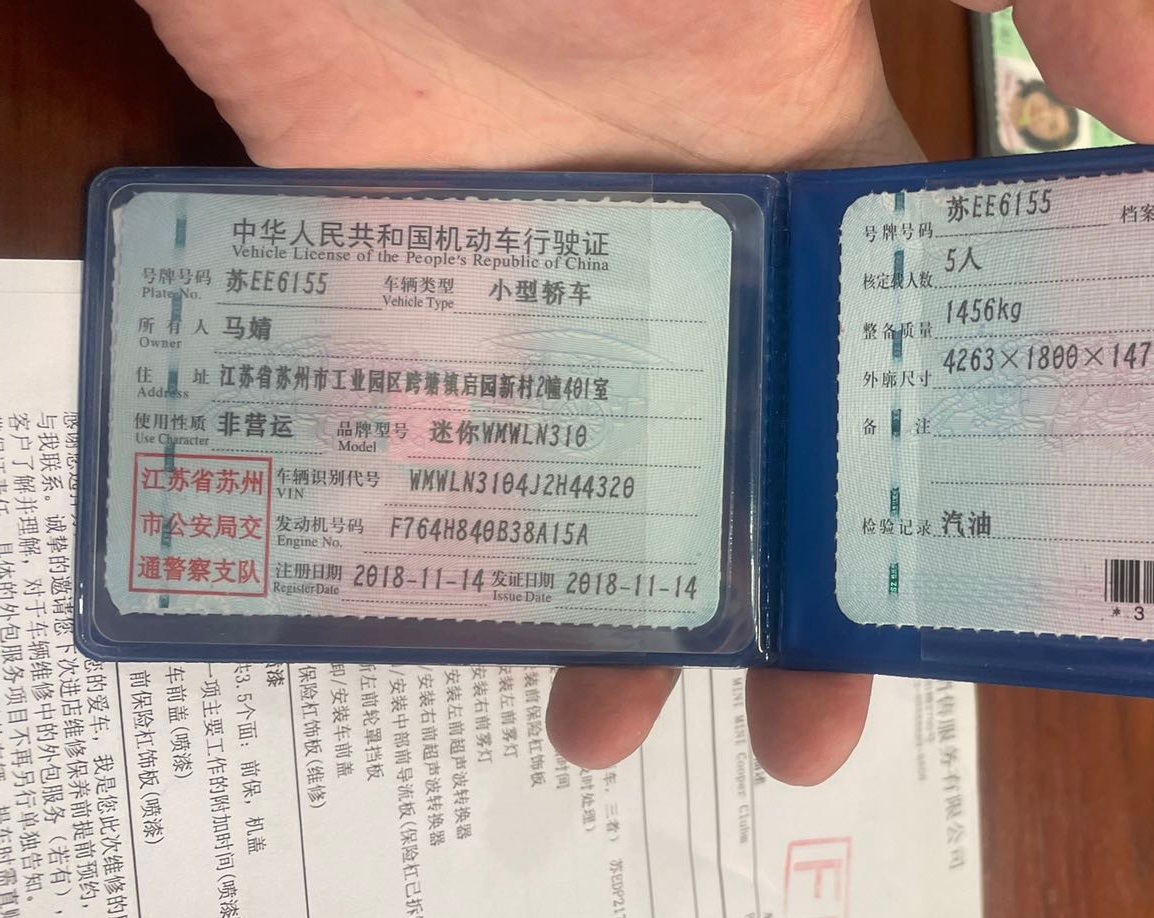 中华人民共和国机动车行驶证
Vehicle License of the People's Republic of China
号牌号码 苏EE6155 车辆类型 小型轿车
Plate No. Vehicle Type
所有人 马婧
Owner
住址 江苏省苏州市工业园区跨塘镇启园新村2幢401室
Address
使用性质 非营运 品牌型号 迷你WMWLN310
Use Character Model
江苏省苏州
市公安局交
通警察支队
车辆识别代号 WMWLN3104J2H44320
VIN
发动机号码 F764H840B38A15A
Engine No.
注册日期 2018-11-14 发证日期 2018-11-14
Register Date Issue Date
号牌号码 苏EE6155 档案
核定载人数 5人
整备质量 1456kg
外廓尺寸 4263×1800×147
备注
检验记录 汽油
*3
售服务有限公司
MINI Cooper Clubm
车，三者） 苏EDP217
及时处理）
时间
装前保险杠饰板
装左前雾灯
安装右前雾灯
安装左前超声波转换器
/安装右前超声波转换器
/安装中部前导流板(保险杠已拆
左前轮罩挡板
卸/安装车前盖
保险杠饰板(维修)
漆
3.5个面：前保，机盖
一项主要工作的附加时间(喷漆
车前盖(喷漆)
前保险杠饰板(喷漆)
您的爱车，我是您此次维修的
与我联系。诚挚的邀请您下次进店维修保养前提前预约，
客户了解并理解，对于车辆维修中的外包服务（若有），
具体的外包服务项目不再另行单独告知。